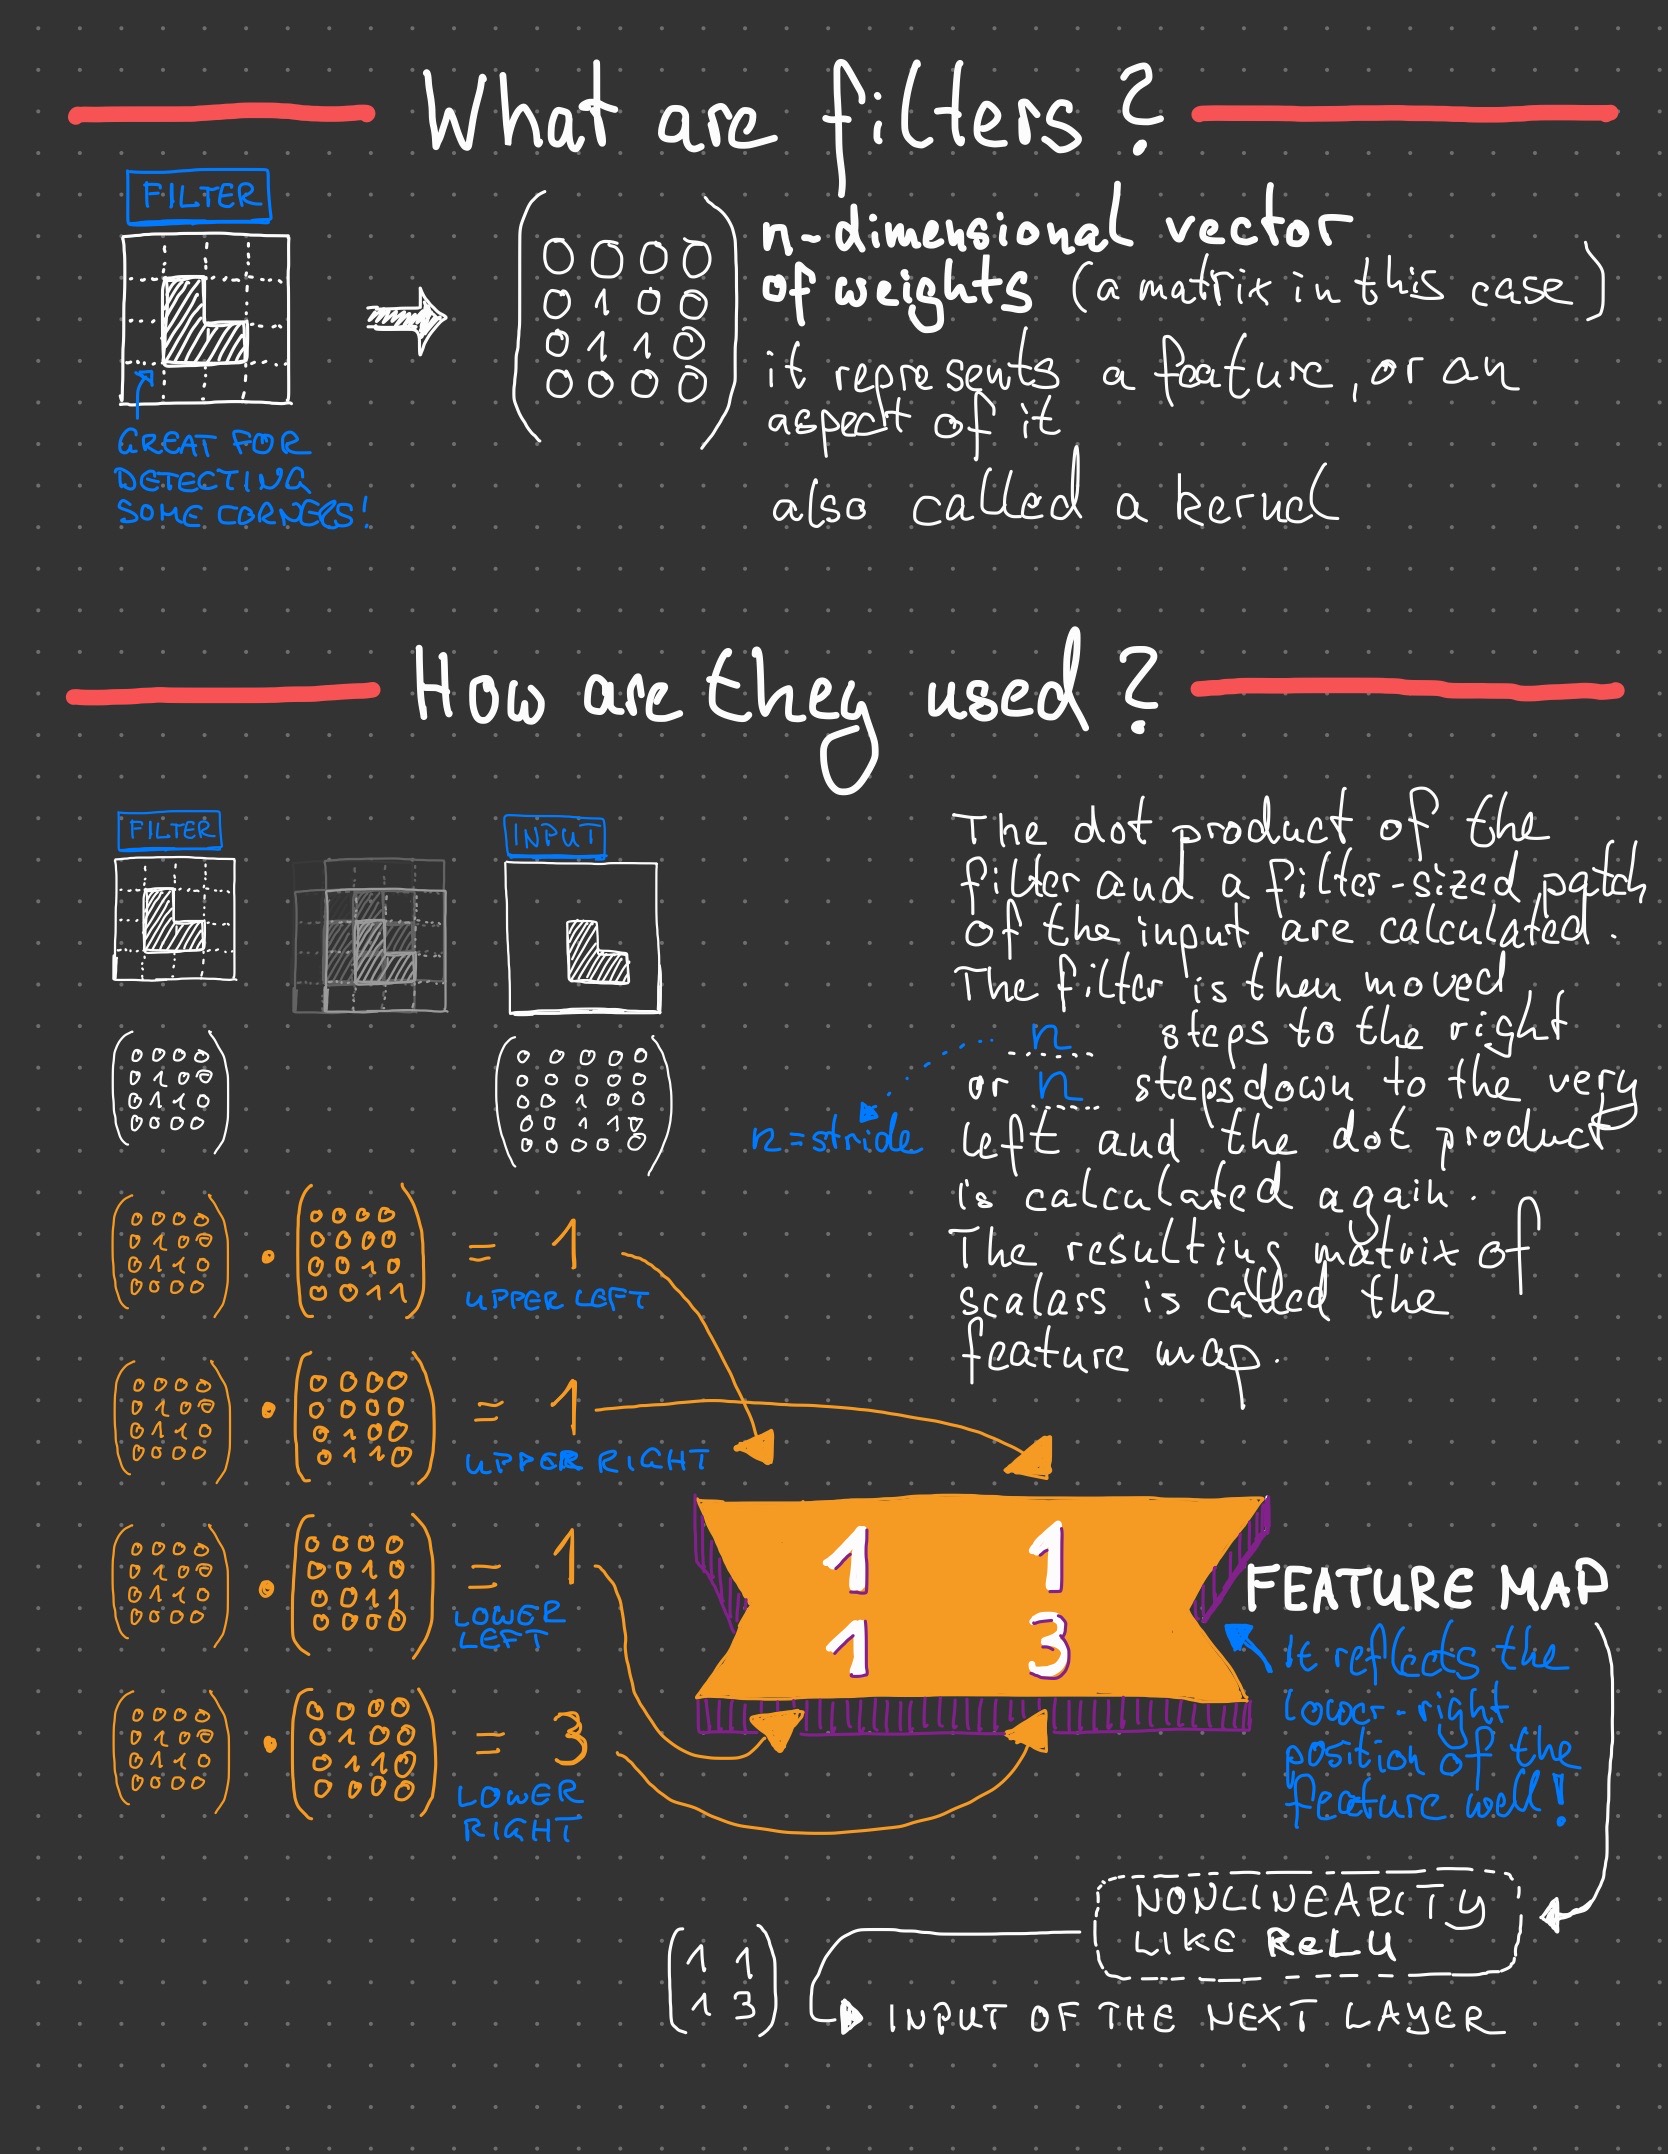 What are filters?
FILTER
0 0 0 0
0 1 0 0
0 1 1 0
0 0 0 0
GREAT FOR
DETECTING
SOME CORNERS!
n-dimensional vector
of weights (a matrix in this case)
it represents a feature, or an
aspect of it
also called a kernel
How are they used?
FILTER
INPUT
0 0 0 0
0 1 0 0
0 1 1 0
0 0 0 0
0 0 0 0 0
0 0 0 0 0
0 0 1 0 0
0 0 1 1 0
0 0 0 0 0
The dot product of the
filter and a filter-sized patch
of the input are calculated.
The filter is then moved
n steps to the right
or n steps down to the very
left and the dot product
is calculated again.
The resulting matrix of
scalars is called the
feature map.
n = stride
0 0 0 0
0 1 0 0
0 1 1 0
0 0 0 0
•
0 0 0 0
0 0 0 0
0 0 1 0
0 0 1 1
= 1
UPPER LEFT
0 0 0 0
0 1 0 0
0 1 1 0
0 0 0 0
•
0 0 0 0
0 0 0 0
0 1 0 0
0 1 1 0
= 1
UPPER RIGHT
0 0 0 0
0 1 0 0
0 1 1 0
0 0 0 0
•
0 0 0 0
0 0 1 0
0 0 1 1
0 0 0 0
= 1
LOWER
LEFT
0 0 0 0
0 1 0 0
0 1 1 0
0 0 0 0
•
0 0 0 0
0 1 0 0
0 1 1 0
0 0 0 0
= 3
LOWER
RIGHT
1 1
1 3
FEATURE MAP
It reflects the
lower-right
position of the
feature well!
NONLINEARITY
LIKE ReLU
1 1
1 3
INPUT OF THE NEXT LAYER